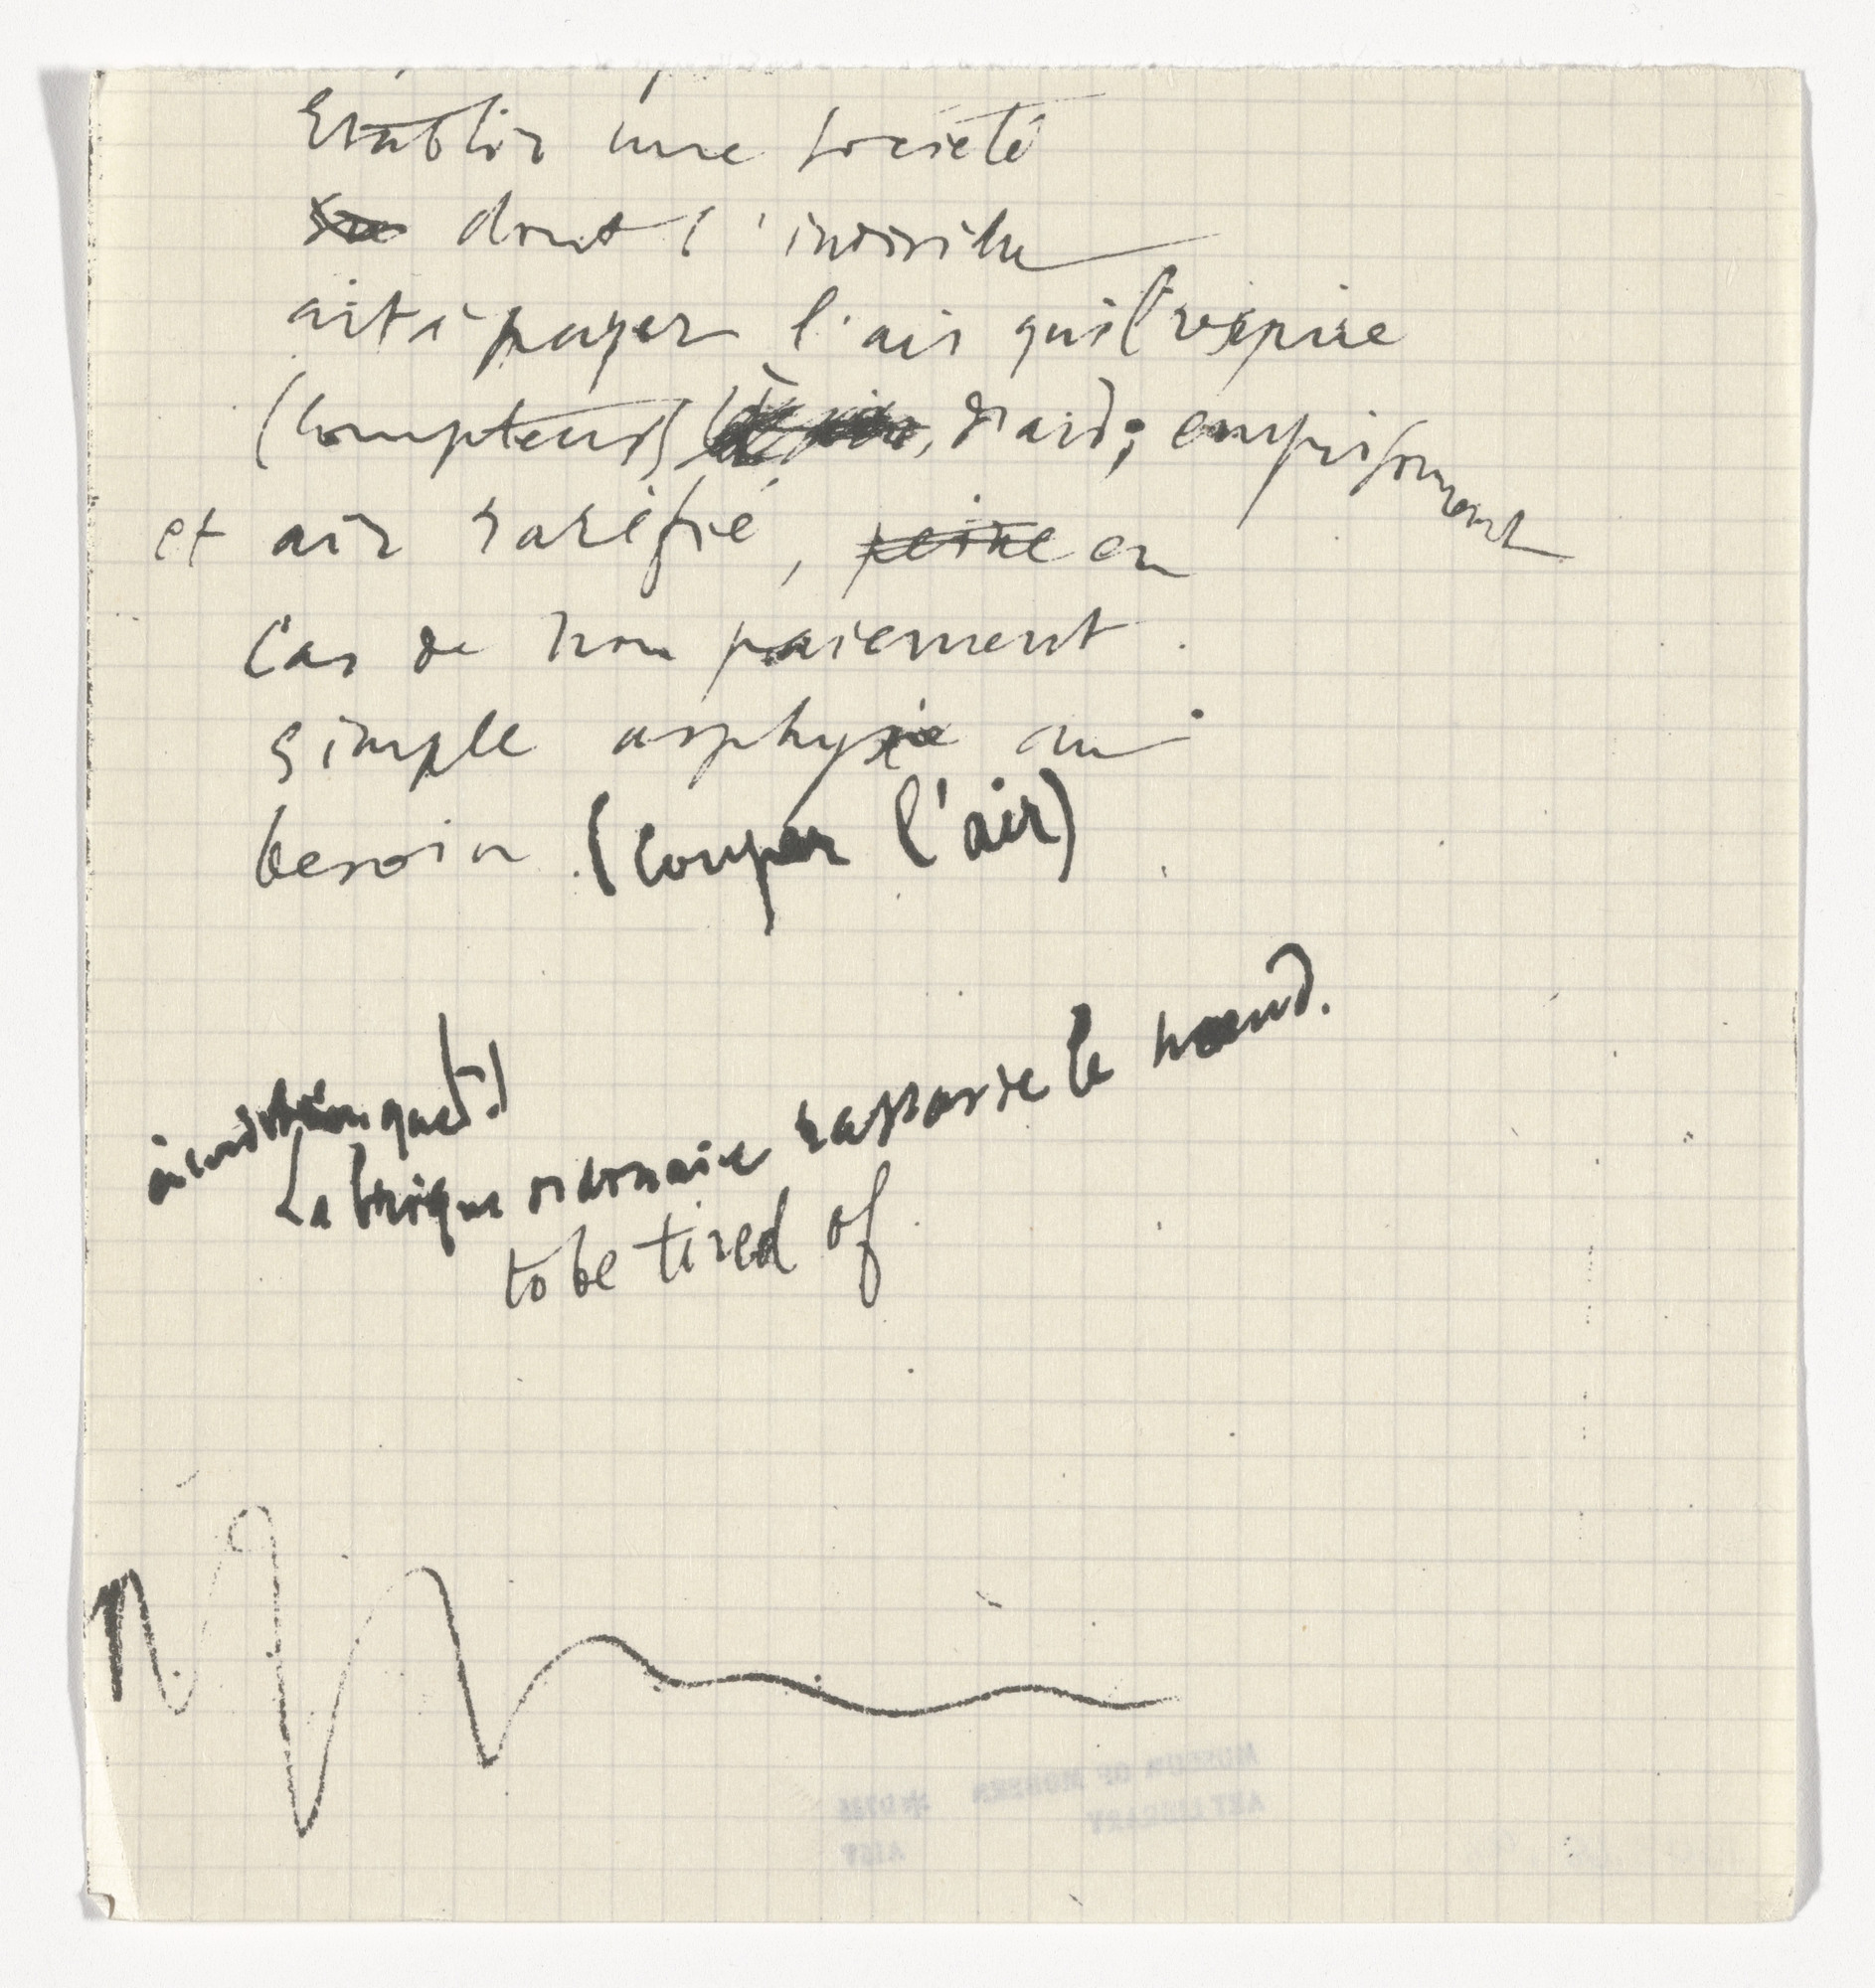 Etablir une société
dont l'individu
ait à payer l'air qu'il respire
(compteurs d'air; emprisonnement
et air raréfié, peine en
Cas de non paiement
simple asphyxie au
besoin (couper l'air)
à condition que (.)
La brique ordinaire rassasie le nœud.
to be tired of
MUSEUM OF MODERN
ART LIBRARY